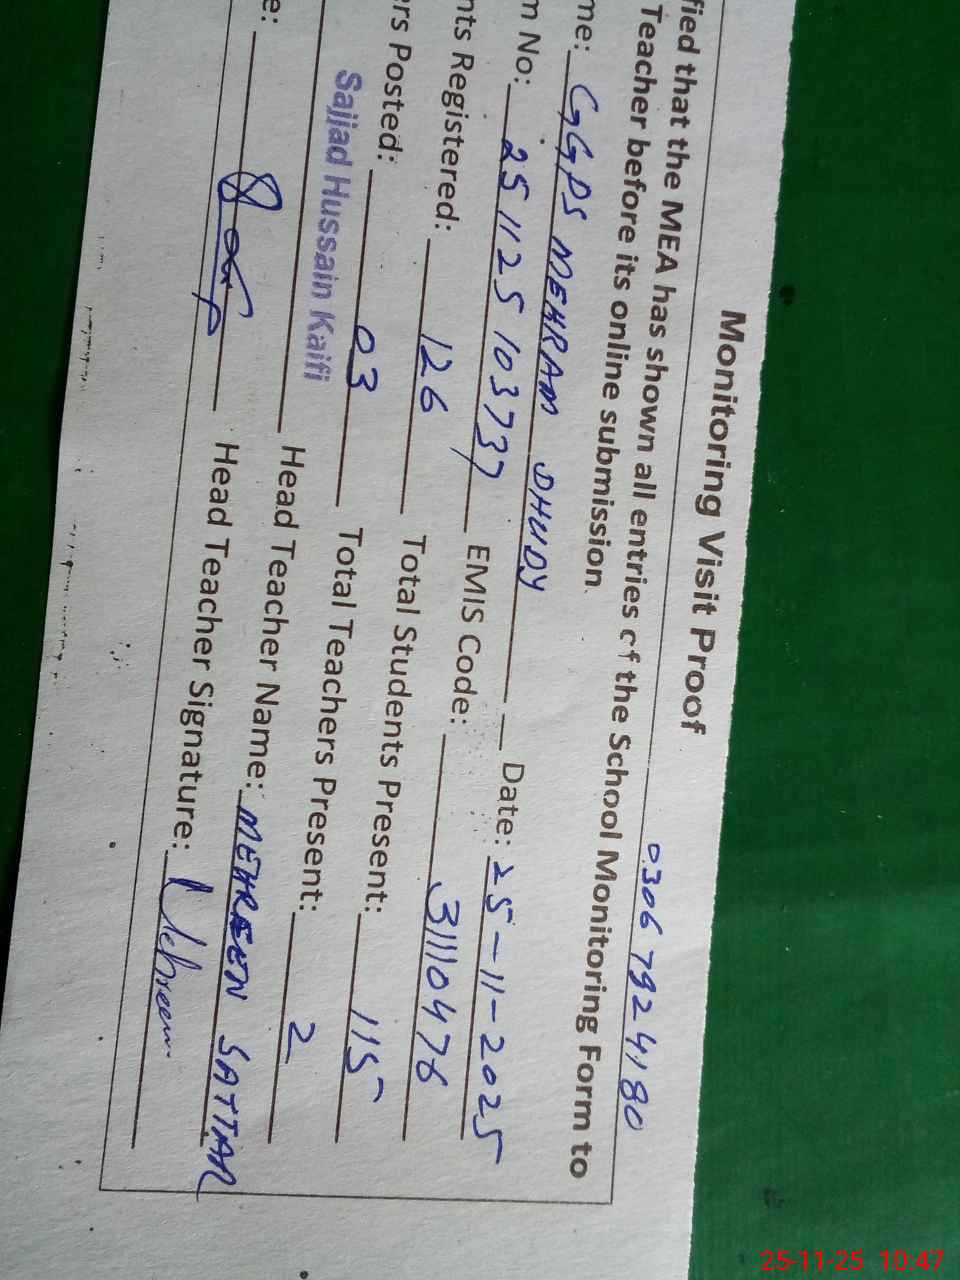 Monitoring Visit Proof
0306 7924180
fied that the MEA has shown all entries of the School Monitoring Form to
Teacher before its online submission.
me: GGPS MEHRAM DHUDY Date: 25-11-2025
m No: 251125 10373 EMIS Code: 31110476
nts Registered: 126 Total Students Present: 115
ers Posted: 03 Total Teachers Present: 2
Sajjad Hussain Kaifi Head Teacher Name: MEHREEN SATTAR
e: Head Teacher Signature: Mehreen
25-11-25 10:47